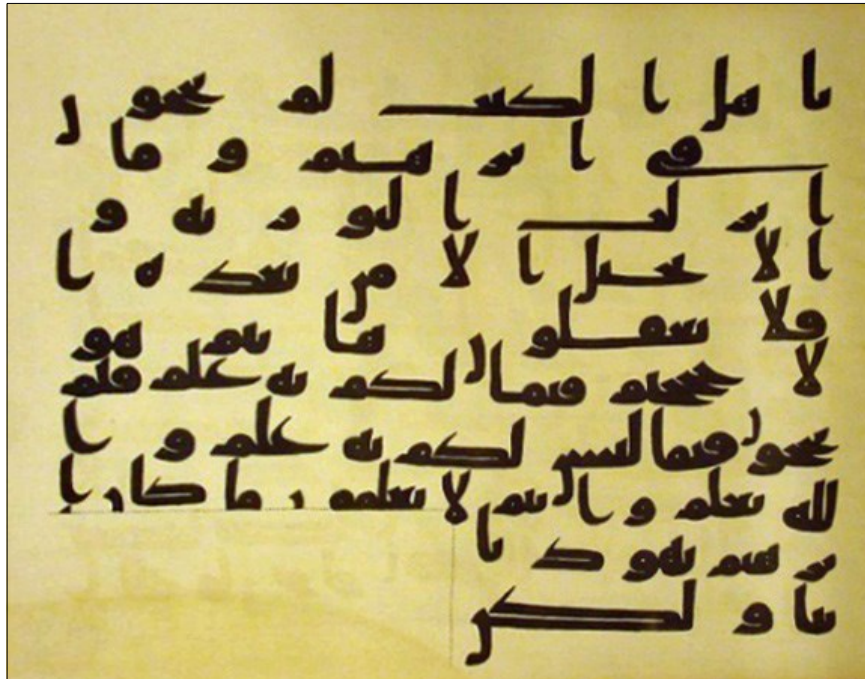 يا هل ا لكتب لم تحجو ن
في ا بر هيم و ما
ا نز لت ا لتو ر يه و
ا لا نجيل ا لا من بعد ه ا
فلا تعقلو ها نتم هو
لا حججتم فيما لكم به علم فلم
تحجون فيما ليس لكم به علم و ا
لله يعلم و ا نتم لا تعلمو ن ما كان ا
بر هيم يهو د يا
نيا و لكن